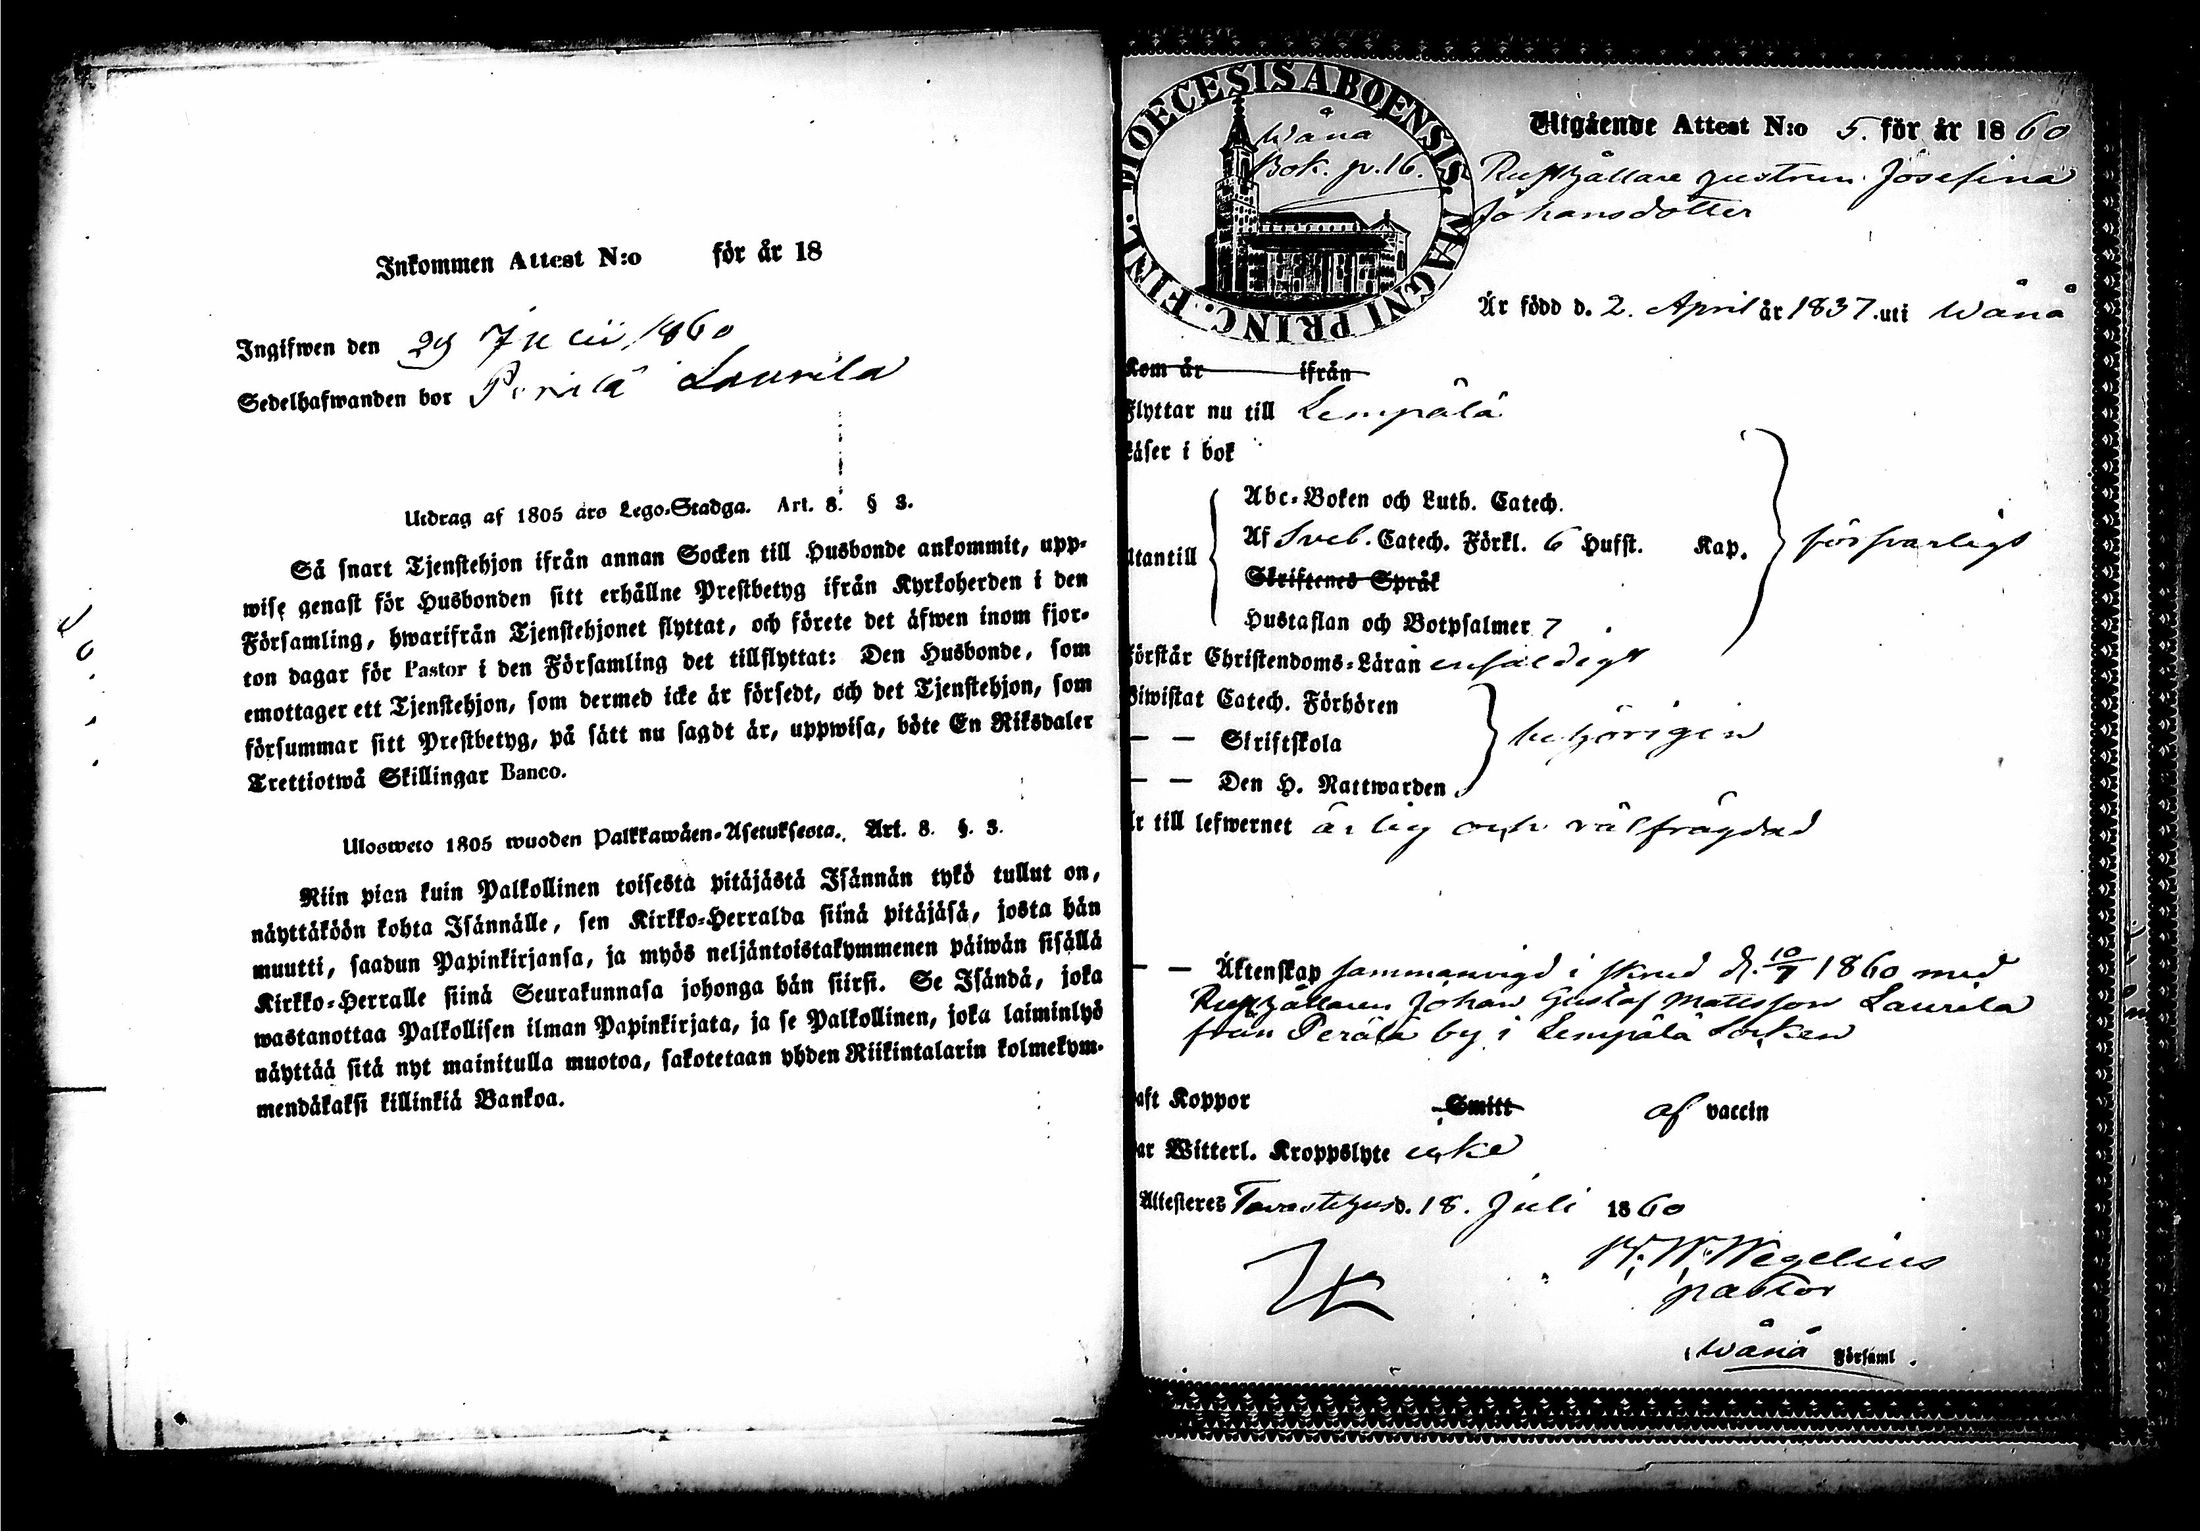 Inkommen Attest N:o för år 18
Ingifwen den 29 Julii 1860
Sedelhafwanden bor Perälä Laurila
Utdrag af 1805 års Lego-Stadga. Art. 8. § 3.
Så snart Tjenstehjon ifrån annan Socken till Husbonde ankommit, upp-
wise genast för Husbonden sitt erhållne Prestbetyg ifrån Kyrkoherden i den
Församling, hwarifrån Tjenstehjonet flyttat, och förete det äfwen inom fjor-
ton dagar för Pastor i den Församling det tillflyttat: Den Husbonde, som
emottager ett Tjenstehjon, som dermed icke är försedt, och det Tjenstehjon, som
försummar sitt Prestbetyg, på sätt nu sagdt är, uppwisa, böte En Riksdaler
Trettiotwå Skillingar Banco.
Ulosweto 1805 wuoden Palkkawäen-Asetuksesta. Art. 8. §. 3.
Niin pian kuin Palkollinen toisesta pitäjästä Isännän tykö tullut on,
näyttäköön kohta Isännälle, sen Kirkko-Herralda siinä pitäjäsä, josta hän
muutti, saadun Papinkirjansa, ja myös neljäntoistakymmenen päiwän sisällä
Kirkko-Herralle siinä Seurakunnasa johonga hän siirsi. Se Isändä, joka
wastanottaa Palkollisen ilman Papinkirjata, ja se Palkollinen, joka laiminlyö
näyttää sitä nyt mainitulla muotoa, sakotetaan yhden Riikintalarin kolmekym-
mendäkaksi killinkiä Bankoa.
DIOECESIS ABOENSIS. MAGNI PRINC. FINL.
Wånå
Bok. p. 16.
Utgående Attest N:o 5. för år 1860
Rusthållare hustrun Josefina
Johansdotter
Är född d. 2. April år 1837. uti Wånå
Kom år ifrån
Flyttar nu till Lempälä
Läser i bok
Abc-Boken och Luth. Catech.
Utantill Af Sveb. Catech. Förkl. 6 Hufst. Kap. försvarligt
Skriftenes Språk
Hustaflan och Botpsalmer 7
Förstår Christendoms-Läran enfaldigt
Biwistat Catech. Förhören
— — Skriftskola behörigen
— — Den H. Nattwarden
Är till lefwernet ärlig och välfrägdad
— — Äktenskap sammanvigd i skrud d. 10/7 1860 med
Rusthållaren Johan Gustaf Mattsson Laurila
från Perälä by i Lempälä Socken
Haft Koppor Smitt af vaccin
Har Witterl. Kroppslyte icke
Attesteres Tavastehus d. 18. Juli 1860
W. Wegelius
pastor
Wånå Församl.